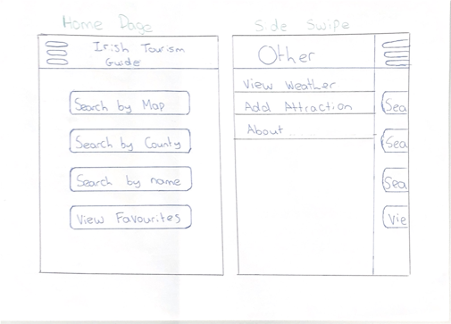 Home Page
Irish Tourism
Guide
Search by Map
Search by County
Search by name
View Favourites
Side Swipe
Other
View Weather
Add Attraction
About
Sea
Sea
Sea
Vie